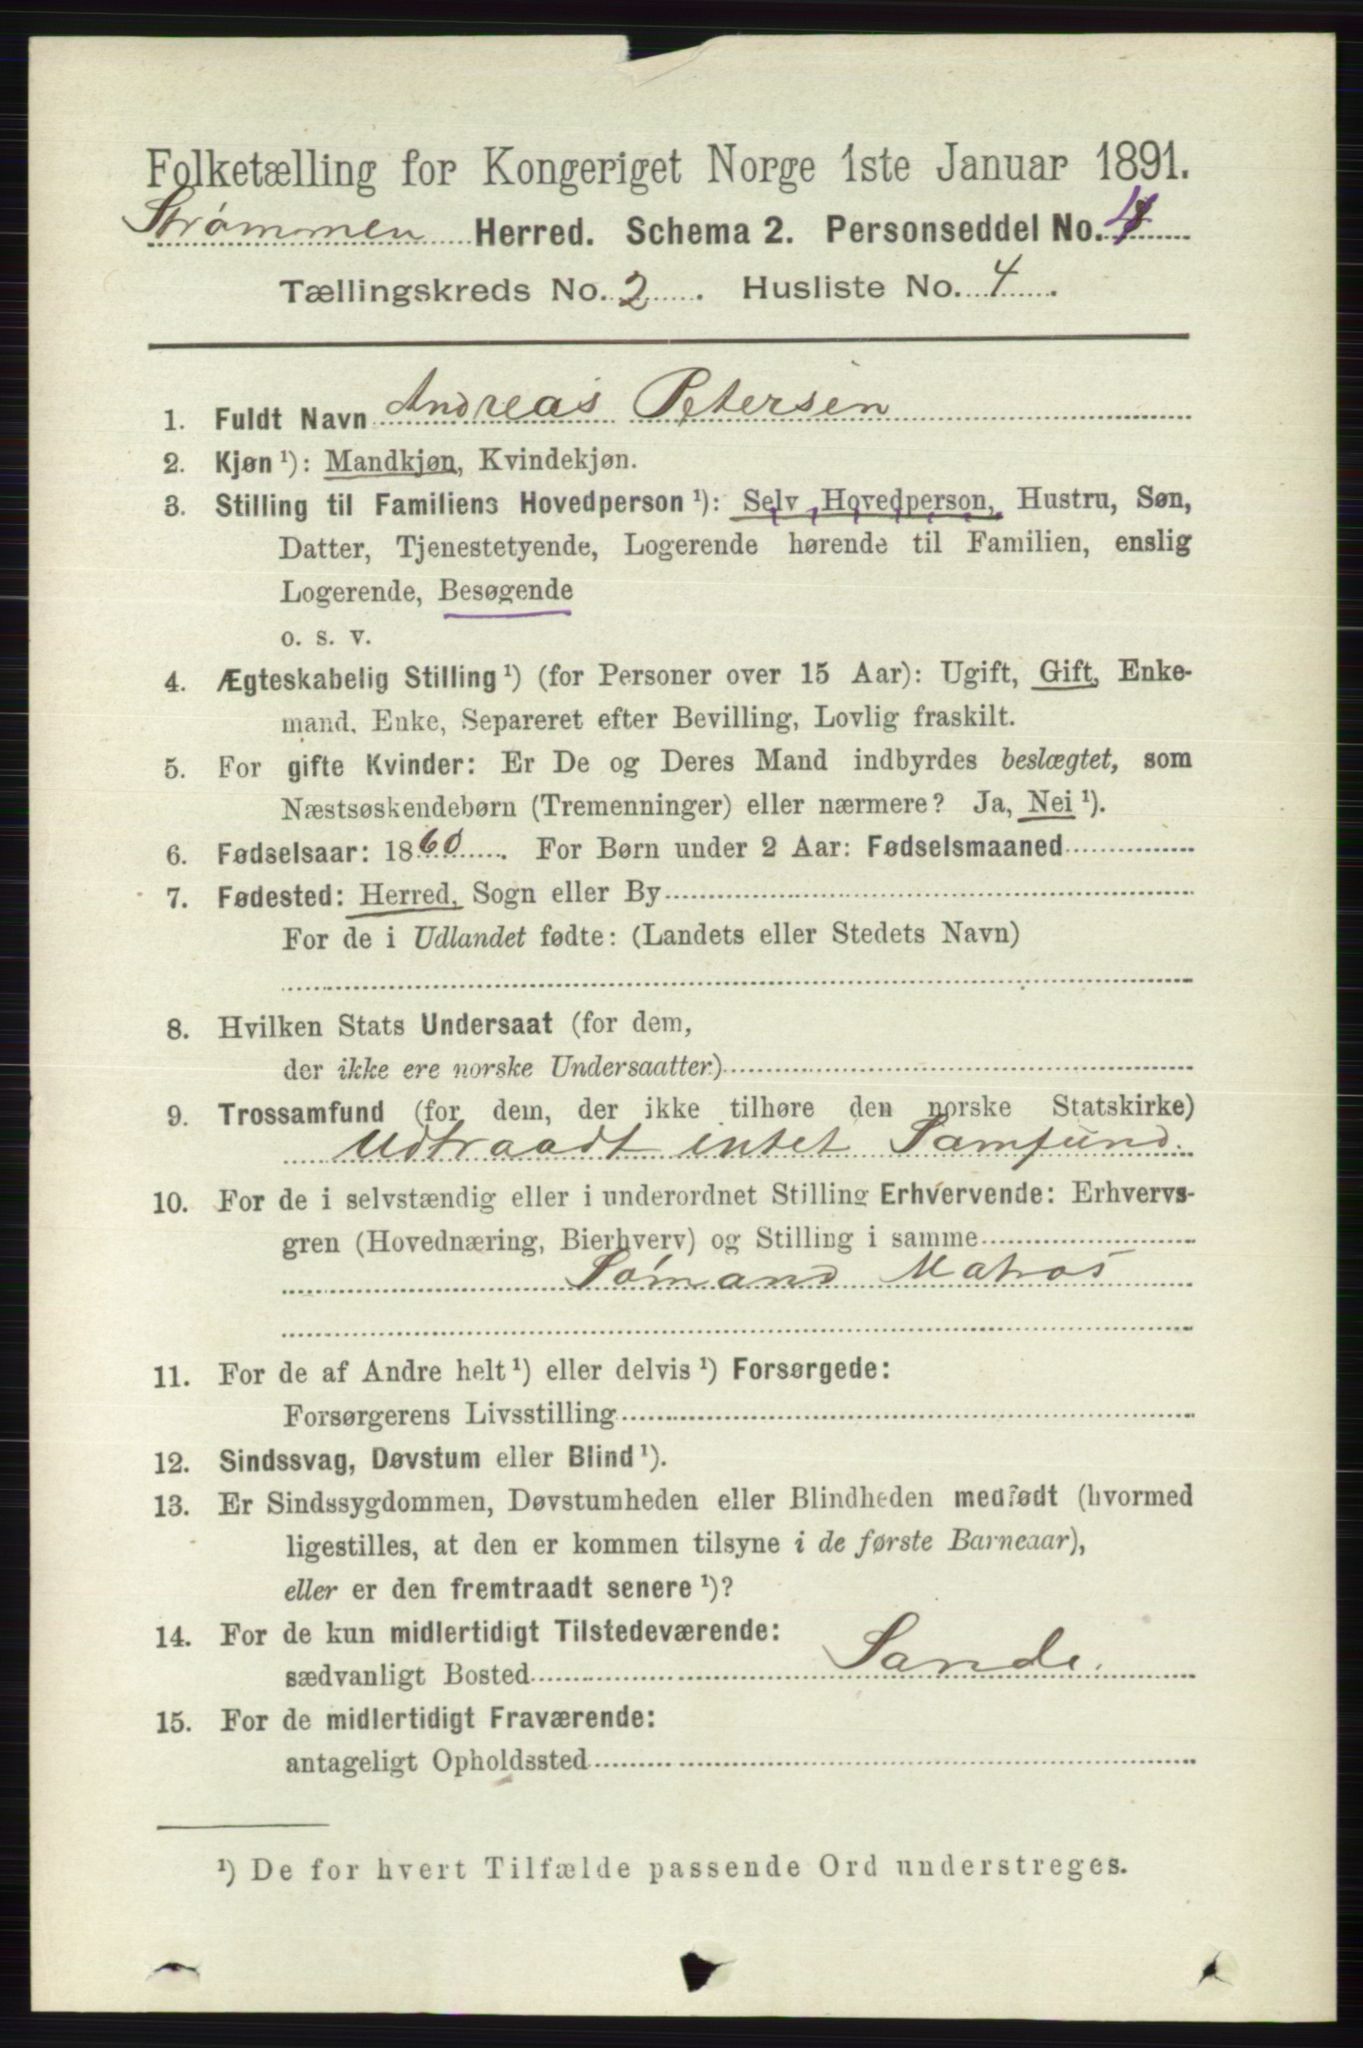 Folketælling for Kongeriget Norge 1ste Januar 1891.
Strømmen Herred. Schema 2. Personseddel No. 4
Tællingskreds No. 2. Husliste No. 4.
1. Fuldt Navn Andreas Petersen
2. Kjøn ¹): Mandkjøn, Kvindekjøn.
3. Stilling til Familiens Hovedperson ¹): Selv Hovedperson, Hustru, Søn,
Datter, Tjenestetyende, Logerende hørende til Familien, enslig
Logerende, Besøgende
o. s. v.
4. Ægteskabelig Stilling ¹) (for Personer over 15 Aar): Ugift, Gift, Enke-
mand, Enke, Separeret efter Bevilling, Lovlig fraskilt.
5. For gifte Kvinder: Er De og Deres Mand indbyrdes beslægtet, som
Næstsøskendebørn (Tremenninger) eller nærmere? Ja, Nei ¹).
6. Fødselsaar: 1860. For Børn under 2 Aar: Fødselsmaaned
7. Fødested: Herred, Sogn eller By
For de i Udlandet fødte: (Landets eller Stedets Navn)
8. Hvilken Stats Undersaat (for dem,
der ikke ere norske Undersaatter)
9. Trossamfund (for dem, der ikke tilhøre den norske Statskirke)
Udtraadt intet Samfund.
10. For de i selvstændig eller i underordnet Stilling Erhvervende: Erhvervs-
gren (Hovednæring, Bierhverv) og Stilling i samme
Sømand Matros
11. For de af Andre helt ¹) eller delvis ¹) Forsørgede:
Forsørgerens Livsstilling
12. Sindssvag, Døvstum eller Blind ¹).
13. Er Sindssygdommen, Døvstumheden eller Blindheden medfødt (hvormed
ligestilles, at den er kommen tilsyne i de første Barneaar),
eller er den fremtraadt senere ¹)?
14. For de kun midlertidigt Tilstedeværende:
sædvanligt Bosted Sande.
15. For de midlertidigt Fraværende:
antageligt Opholdssted
¹) De for hvert Tilfælde passende Ord understreges.